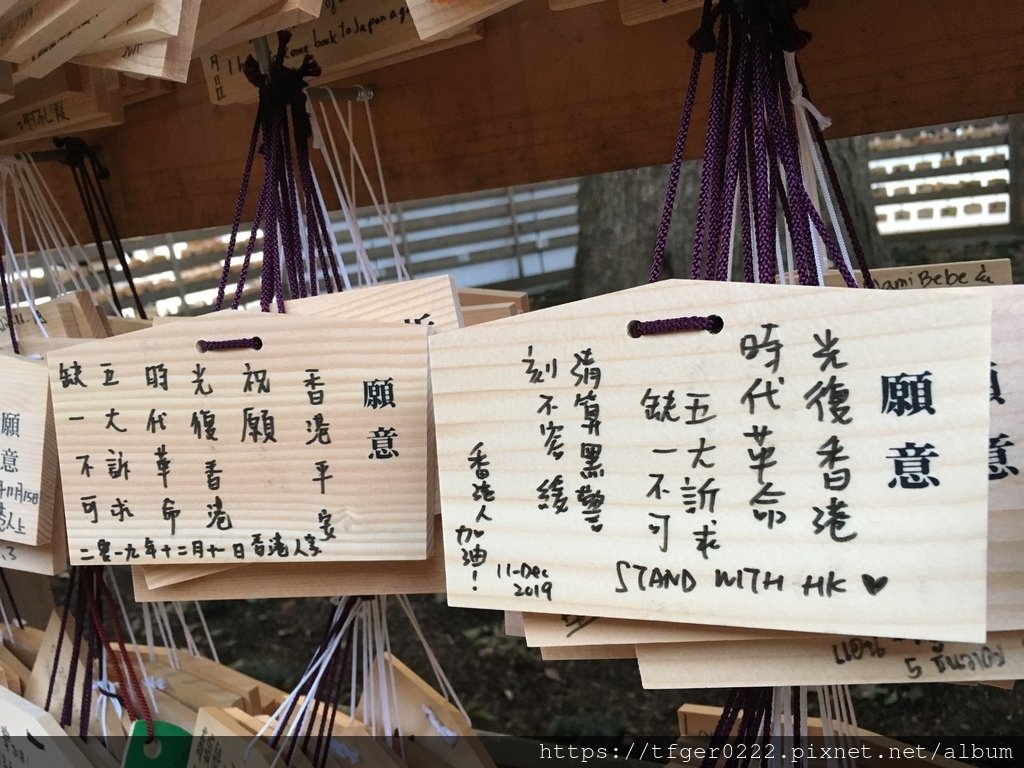 come back to Japan ag
願意
香港平安
祝願
光復香港
時代革命
五大訴求
缺一不可
二零一九年十二月十一日香港人字
願意
光復香港
時代革命
五大訴求
缺一不可
清算黑警
刻不容緩
香港人加油！
11-Dec
2019
STAND WITH HK ♥
願意
願意
https://tfger0222.pixnet.net/album